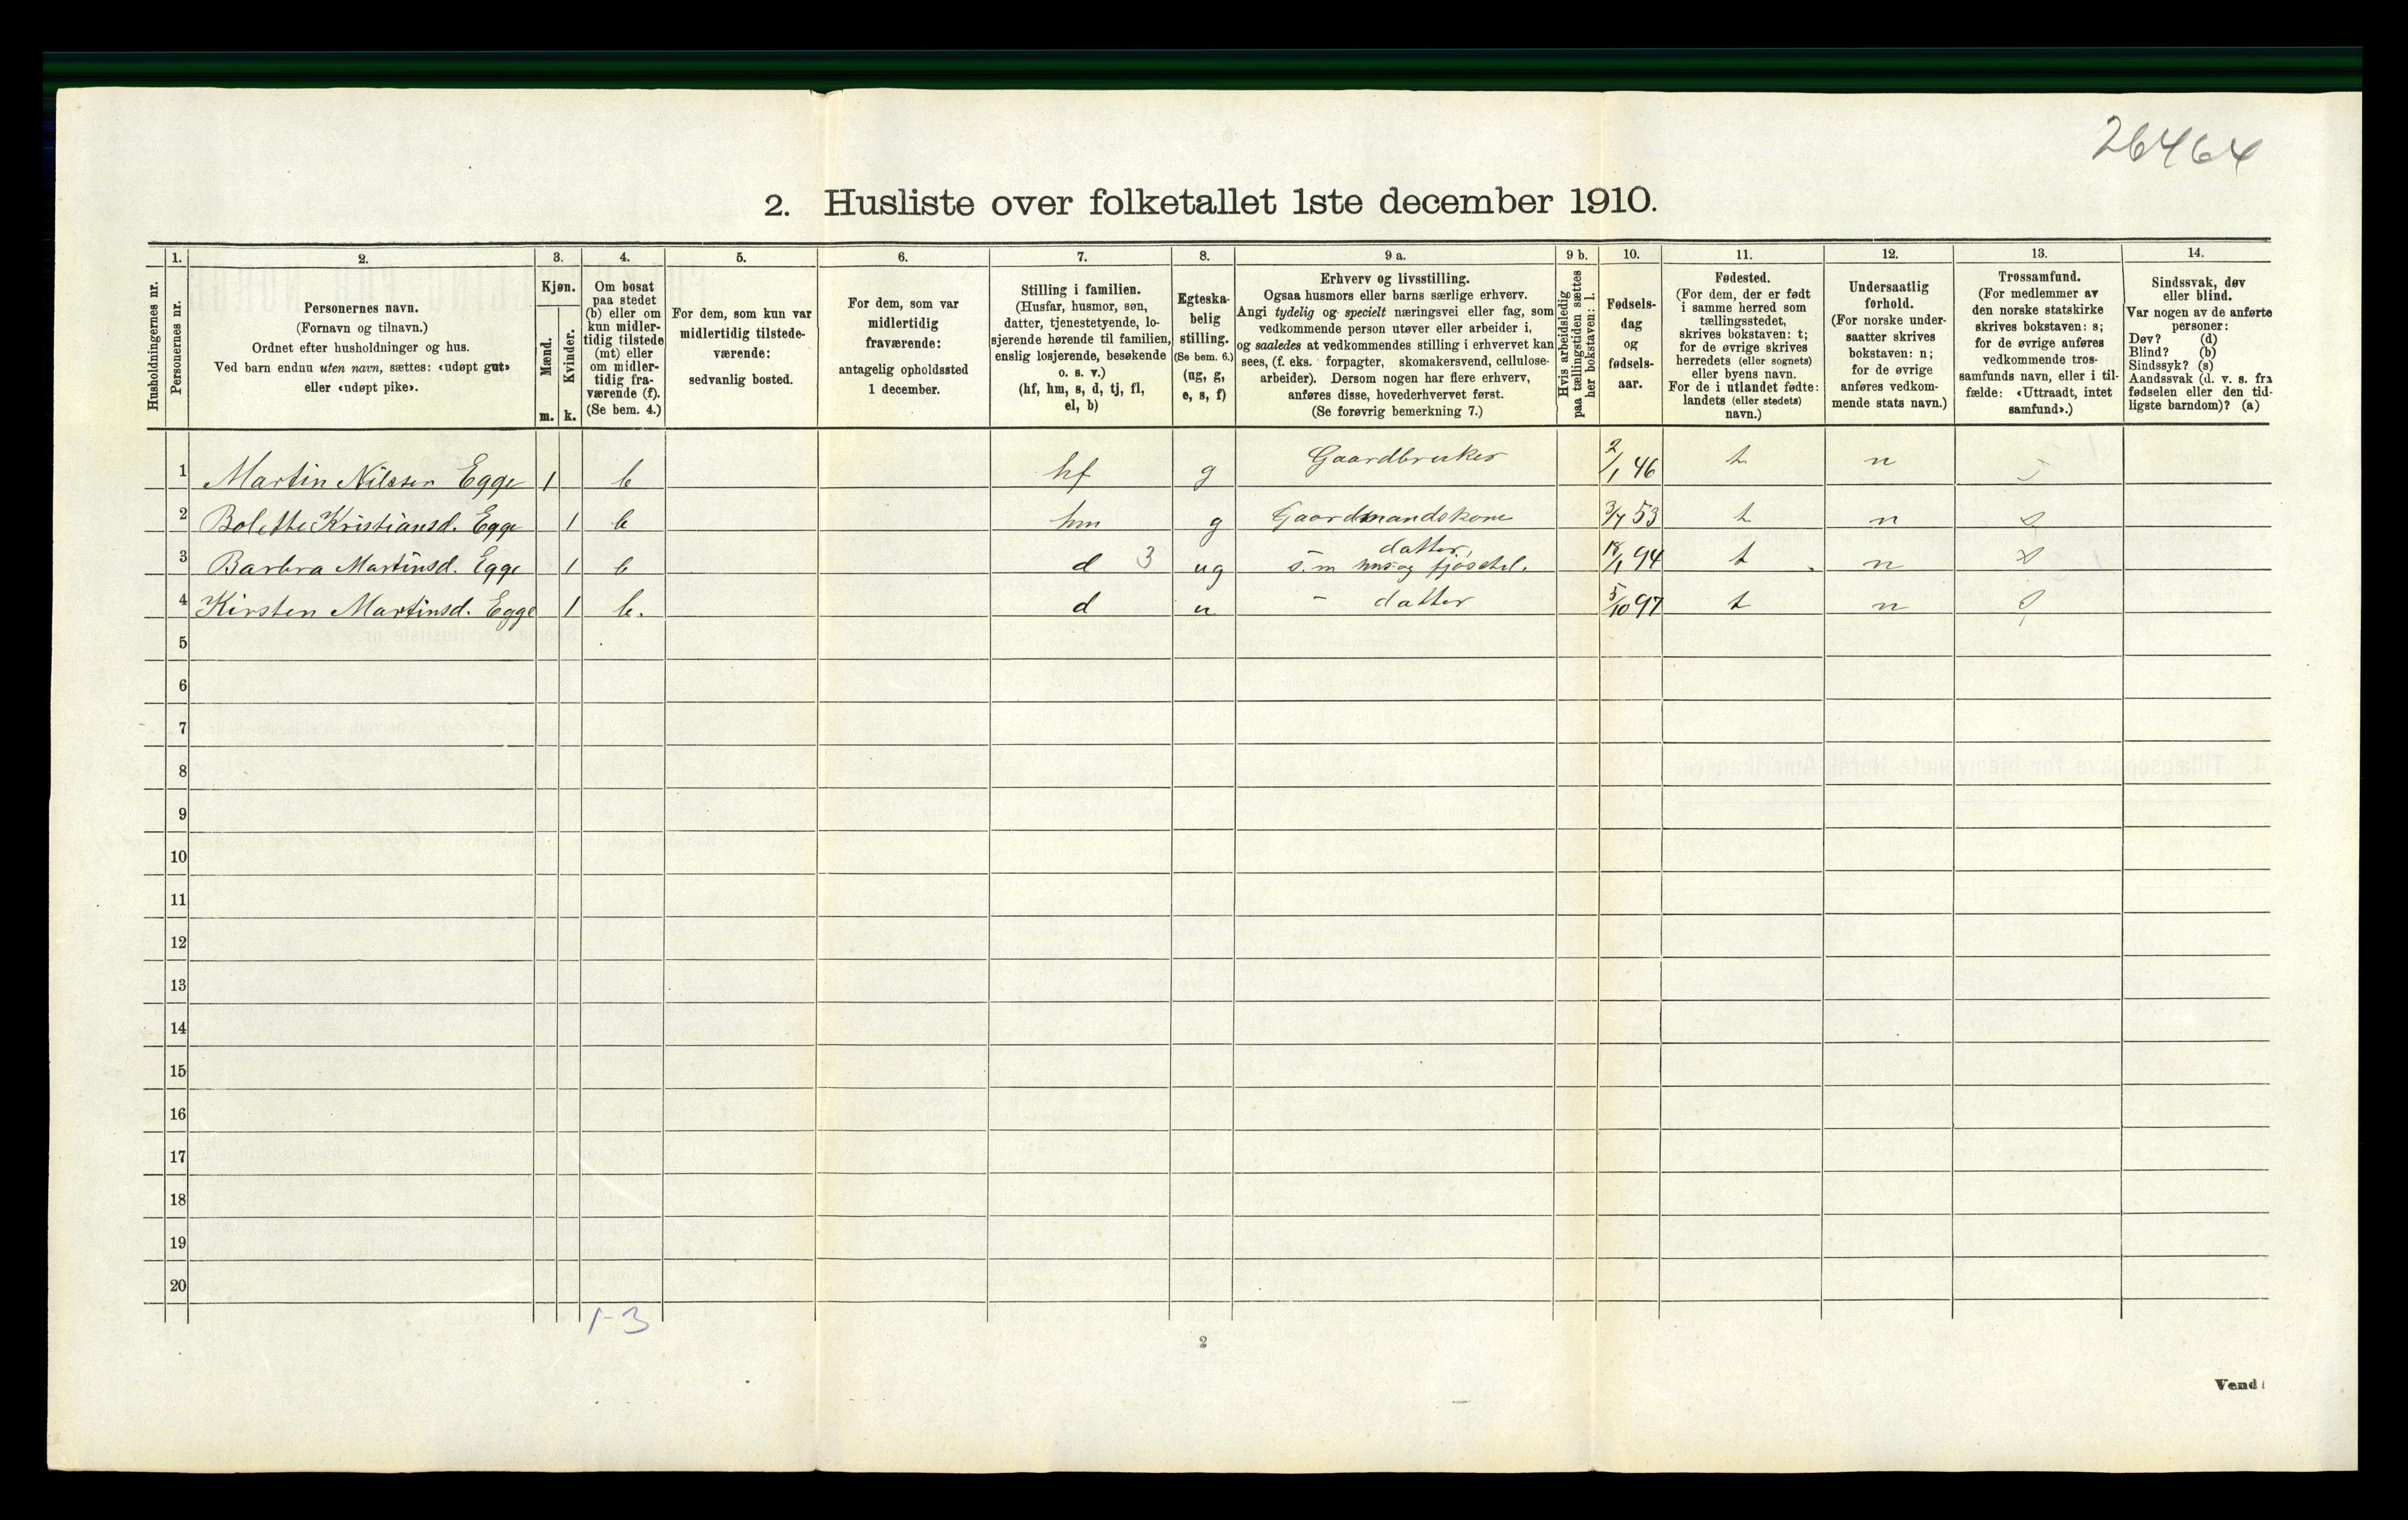 26464
2. Husliste over folketallet 1ste december 1910.
Husholdningernes nr.
1.
Personernes nr.
2.
Personernes navn.
(Fornavn og tilnavn.)
Ordnet efter husholdninger og hus.
Ved barn endnu uten navn, sættes: «udøpt gut»
eller «udøpt pike».
3.
Kjøn.
Mænd.
m.
Kvinder.
k.
4.
Om bosat
paa stedet
(b) eller om
kun midler-
tidig tilstede
(mt) eller
om midler-
tidig fra-
værende (f).
(Se bem. 4.)
5.
For dem, som kun var
midlertidig tilstede-
værende:
sedvanlig bosted.
6.
For dem, som var
midlertidig
fraværende:
antagelig opholdssted
1 december.
7.
Stilling i familien.
(Husfar, husmor, søn,
datter, tjenestetyende, lo-
sjerende hørende til familien,
enslig losjerende, besøkende
o. s. v.)
(hf, hm, s, d, tj, fl,
el, b)
8.
Egteska-
belig
stilling.
(Se bem. 6.)
(ug, g,
e, s, f)
9 a.
Erhverv og livsstilling.
Ogsaa husmors eller barns særlige erhverv.
Angi tydelig og specielt næringsvei eller fag, som
vedkommende person utøver eller arbeider i,
og saaledes at vedkommendes stilling i erhvervet kan
sees, (f. eks. forpagter, skomakersvend, cellulose-
arbeider). Dersom nogen har flere erhverv,
anføres disse, hovederhvervet først.
(Se forøvrig bemerkning 7.)
9 b.
Hvis arbeidsledig
paa tællingstiden sættes
her bokstaven: l.
10.
Fødsels-
dag
og
fødsels-
aar.
11.
Fødested.
(For dem, der er født
i samme herred som
tællingsstedet,
skrives bokstaven: t;
for de øvrige skrives
herredets (eller sognets)
eller byens navn.
For de i utlandet fødte:
landets (eller stedets)
navn.)
12.
Undersaatlig
forhold.
(For norske under-
saatter skrives
bokstaven: n;
for de øvrige
anføres vedkom-
mende stats navn.)
13.
Trossamfund.
(For medlemmer av
den norske statskirke
skrives bokstaven: s;
for de øvrige anføres
vedkommende tros-
samfunds navn, eller i til-
fælde: «Uttraadt, intet
samfund».)
14.
Sindssvak, døv
eller blind.
Var nogen av de anførte
personer:
Døv? (d)
Blind? (b)
Sindssyk? (s)
Aandssvak (d. v. s. fra
fødselen eller den tid-
ligste barndom)? (a)
1 Martin Nilssen Egge 1 b hf g Gaardbruker 2/1 46 t n s
2 Bolette Kristiansd. Egge 1 b hm g Gaardmandskone 3/7 53 t n s
3 Barbra Martinsd. Egge 1 b d 3 ug datter, 18/1 94 t n s
4 Kirsten Martinsd. Egge 1 b. d u - datter 5/10 97 t n s
5
6
7
8
9
10
11
12
13
14
15
16
17
18
19
20
1-3
2
Vend